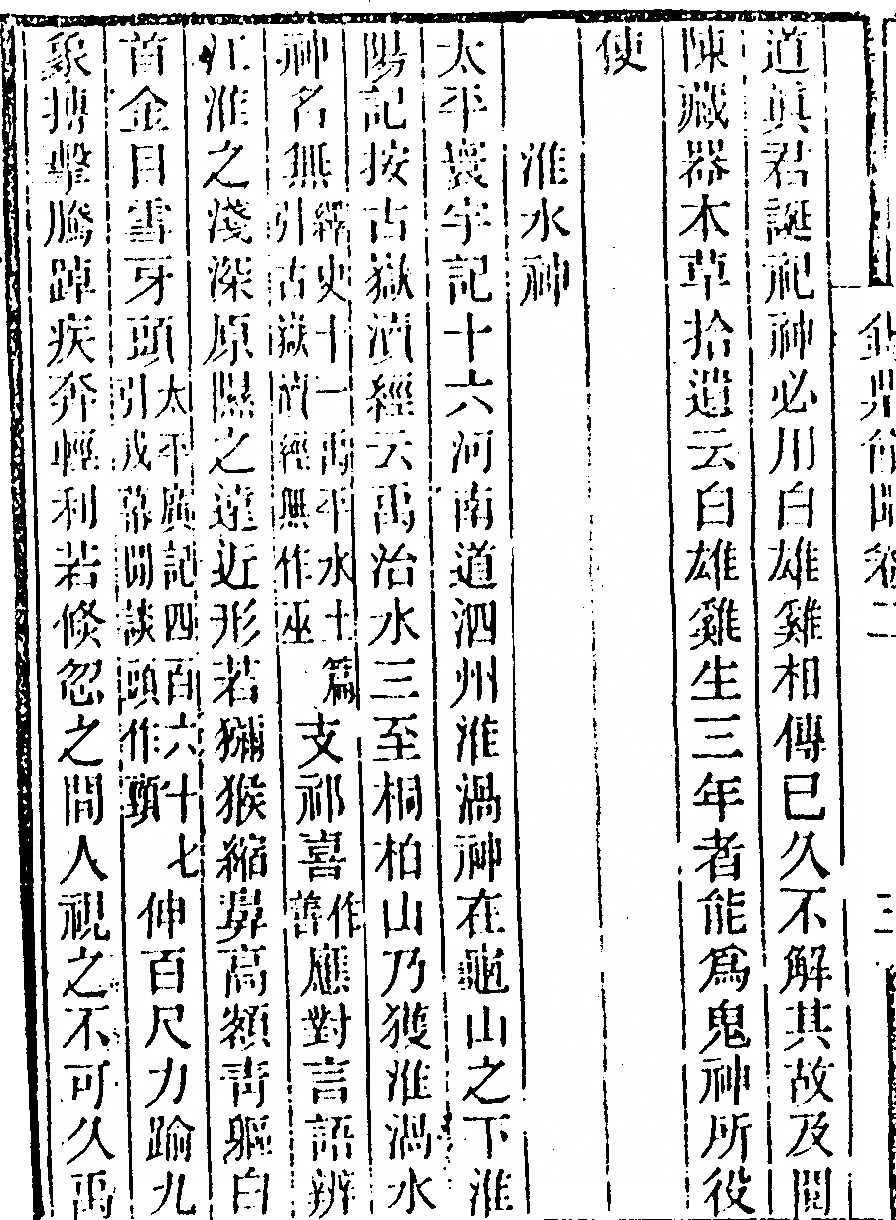 鑄鼎餘聞卷二　三
道眞君誕祀神必用白雄雞相傳已久不解其故及閱
陳藏器本草拾遺云白雄雞生三年者能爲鬼神所役
使
淮水神
太平寰宇記十六河南道泗州淮渦神在龜山之下淮
陽記按古嶽瀆經云禹治水三至桐柏山乃獲淮渦水
神名無繹史十一禹平水土篇引古嶽瀆經無作巫支祁喜作善應對言語辨
江淮之淺深原隰之遠近形若獼猴縮鼻高額靑軀白
首金目雪牙頭太平廣記四百六十七引戎幕閒談頭作頸伸百尺力踰九
象搏擊騰踔疾奔輕利若倏忽之間人視之不可久禹